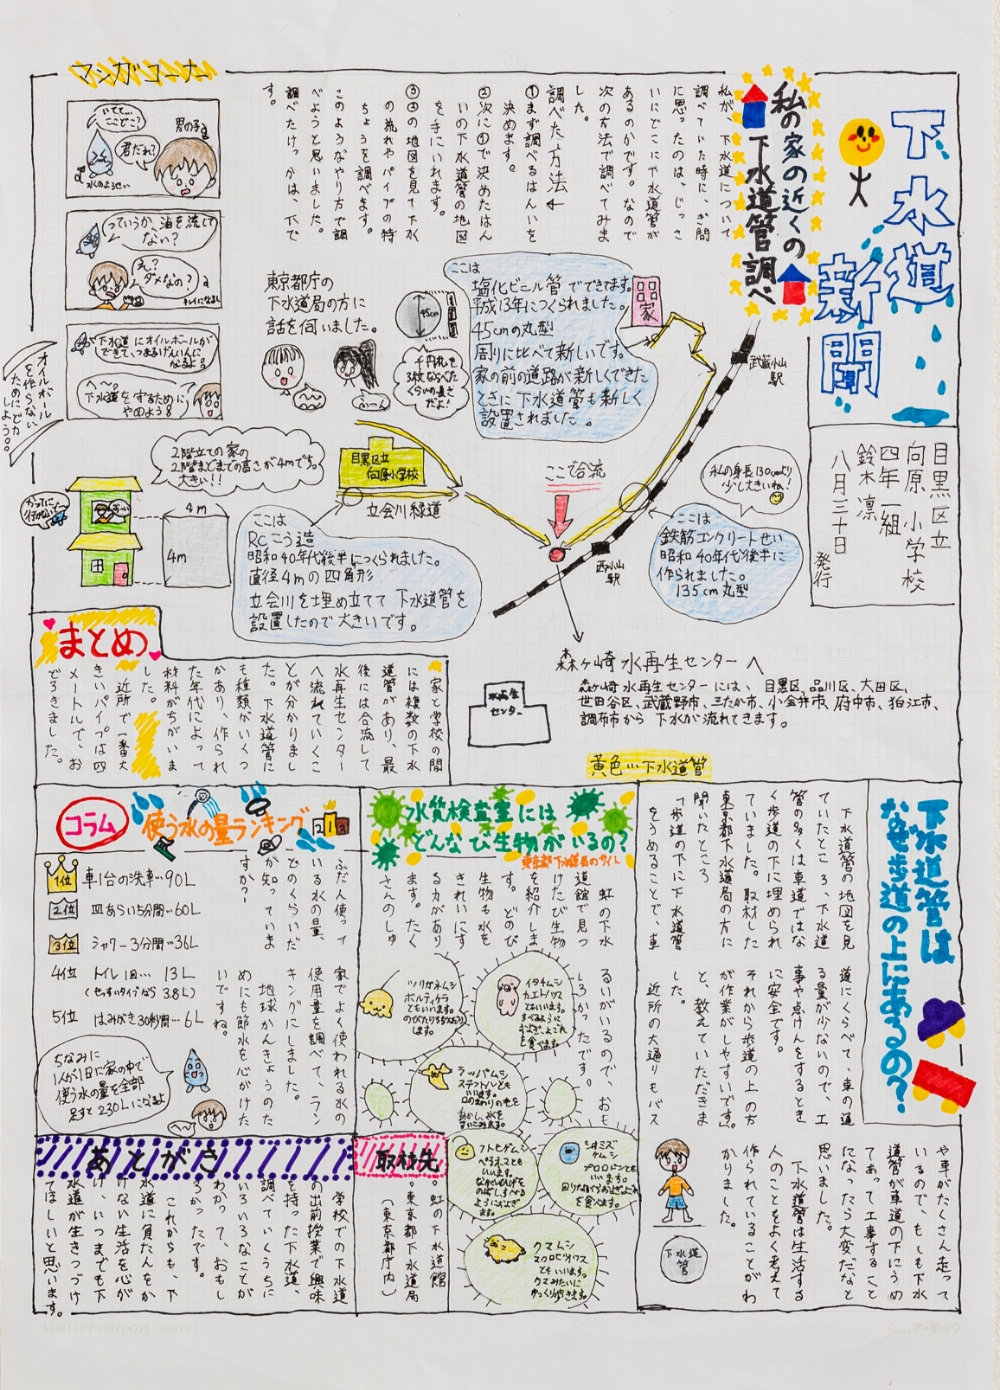 下水道
新聞
目黒区立
向原小学校
四年一組
鈴木凛
八月三十日
発行
私の家の近くの
下水道管調べ
私が、下水道について
調べていた時に、ぎ問
に思ったのは、じっさ
いにどこに下水道管が
あるのかです。なので
次の方法で調べてみま
した。
調べた方法
①まず調べるはんいを
決めます。
②次に①で決めたはん
いの下水道管の地図
を手にいれます。
③②の地図を見て下水
の流れやパイプの特
ちょうを調べます。
このようなやり方で調
べようと思いました。
調べたけっかは、下で
す。
マンガコーナー
いてて…
ここどこ?
男の子
君だれ?
水のようせい
っていうか、油を流して
ない?
え?
ダメなの?
キレイになるし
下水道にオイルボールが
できて、つまるげんいんに
なるよ。
へ〜。
下水道をするために
やめよう
オイルボール
を作らない
ためにどりょく
しよう。
東京都庁の
下水道局の方に
話を伺いました。
ふーん
45cm
千円札を
3枚ならべた
くらいの長さ
だよ!
ここは
塩化ビニール管でできてます。
平成13年につくられました。
45cmの丸型
周りに比べて新しいです。
家の前の道路が新しくできた
ときに下水道管も新しく
設置されました。
家
武蔵小山
駅
2階立ての家の
2階まどまでの高さが4mです。
大きい!!
4m
4m
目黒区立
向原小学校
立会川緑道
ここで合流
私の身長130cmより
少し大きいね!
ここは
RCこう造
昭和40年代後半につくられました。
直径4mの四角形
立会川を埋め立てて下水道管を
設置したので大きいです。
西小山
駅
ここは
鉄筋コンクリートせい
昭和40年代後半に
作られました。
135cm丸型
森ヶ崎水再生センターへ
水再生
センター
森ヶ崎水再生センターには、目黒区、品川区、大田区、
世田谷区、武蔵野市、三たか市、小金井市、府中市、狛江市、
調布市から下水が流れてきます。
黄色…下水道管
まとめ
家と学校の間
には複数の下水
道管があり、最
後には合流して
水再生センター
へ流れていくこ
とが分かりまし
た。下水道管に
も種類がいくつ
かあり、作られ
た年代によって
材料がちがいま
した。
近所で一番大
きいパイプは四
メートルで、お
どろきました。
下水道管は
なぜ歩道の上にあるの?
下水道管の地図を見
ていたところ、下水道
管の多くは車道ではな
く歩道の下に埋められ
ていました。取材した
東京都下水道局の方に
聞いたところ
「歩道の下に下水道管
をうめることで、車
道にくらべて、車の通
る量が少ないので、工
事や点けんをするとき
に安全です。
それから歩道の上の方
が作業がしやすいです。」
と、教えていただきま
した。
近所の大通りもバス
や車がたくさん走って
いるので、もしも下水
道管が車道の下にうめ
てあって工事すること
になったら大変だなと
思いました。
下水道管は生活する
人のことをよく考えて
作られていることがわ
かりました。
下水道
管
コラム
使う水の量ランキング
1位 車1台の洗車…90L
2位 皿あらい5分間…60L
3位 シャワー3分間…36L
4位 トイレ1回… 13L
(せっすいタイプなら 3.8L)
5位 はみがき30秒間…6L
ふだん人使って
いる水の量、
どのくらいだ
か知っていま
すか?
家でよく使われる水の
使用量を調べて、ラン
キングにしました。
地球かんきょうのた
めにも節水を心がけた
いですね。
ちなみに
1人が1日に家の中で
使う水の量を全部
足すと230Lになるよ
水質検査室には
どんなび生物がいるの?
東京都下水道局のサイト
虹の下水
道館で見つ
けたび生物
を紹介しま
す。どのび
生物も水を
きれいにす
る力があり
ます。たく
さんのしゅ
るいがいるので、おも
しろかったです。
ツリガネムシ
ボルティケラ
ともいいます。
のびたりちぢんだりし
ます。
イタチムシ
カエトノツス
ともいいます。
すべるように
およぎ、よごれ
を食べます。
ラッパムシ
ステントルとも
いいます。
口のまわりの毛を
うごかし、水を
すいこみます。
フトヒゲムシ
ペラネマとも
いいます。
ながいひげを
のばしすべる
ようにおよぎ
ます。
シオミズ
ケムシ
プロロドンとも
いいます。
回りながらおよぎよごれ
を食べます。
クマムシ
マクロビオツス
ともいいます。
クマみたいに
ゆっくり歩きます。
あとがき
学校での下水道
の出前授業で興味
を持った下水道、
調べていくうちに
いろいろなことが
わかって、おもし
ろかったです。
これからも、下
水道に負たんをか
けない生活を心が
け、いつまでも下
水道が生きつづけ
てほしいと思います。
取材先
・虹の下水道館
・東京都下水道局
(東京都庁内)